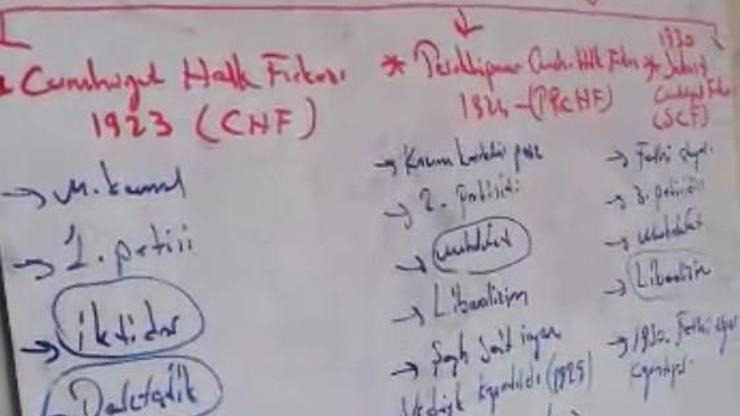 Cumhuriyet Halk Fırkası
1923 (CHF)
→ M. Kemal
→ 1. partisi
→ iktidar
Devletçilik
* Cumh. Halk Fırkası
1924 - (PRCHF)
→ Kazım Karabekir paşa
→ 2. partisidir
→ muhalefet
→ Liberalizm
→ Şeyh Sait isyanı
kapatıldı (1925)
* 1930 Serbest
Cumhuriyet Fırkası
(SCF)
→ Fethi Okyar
→ 3. partisidir
→ muhalefet
→ Liberalizm
→ 1930. Fethi Okyar